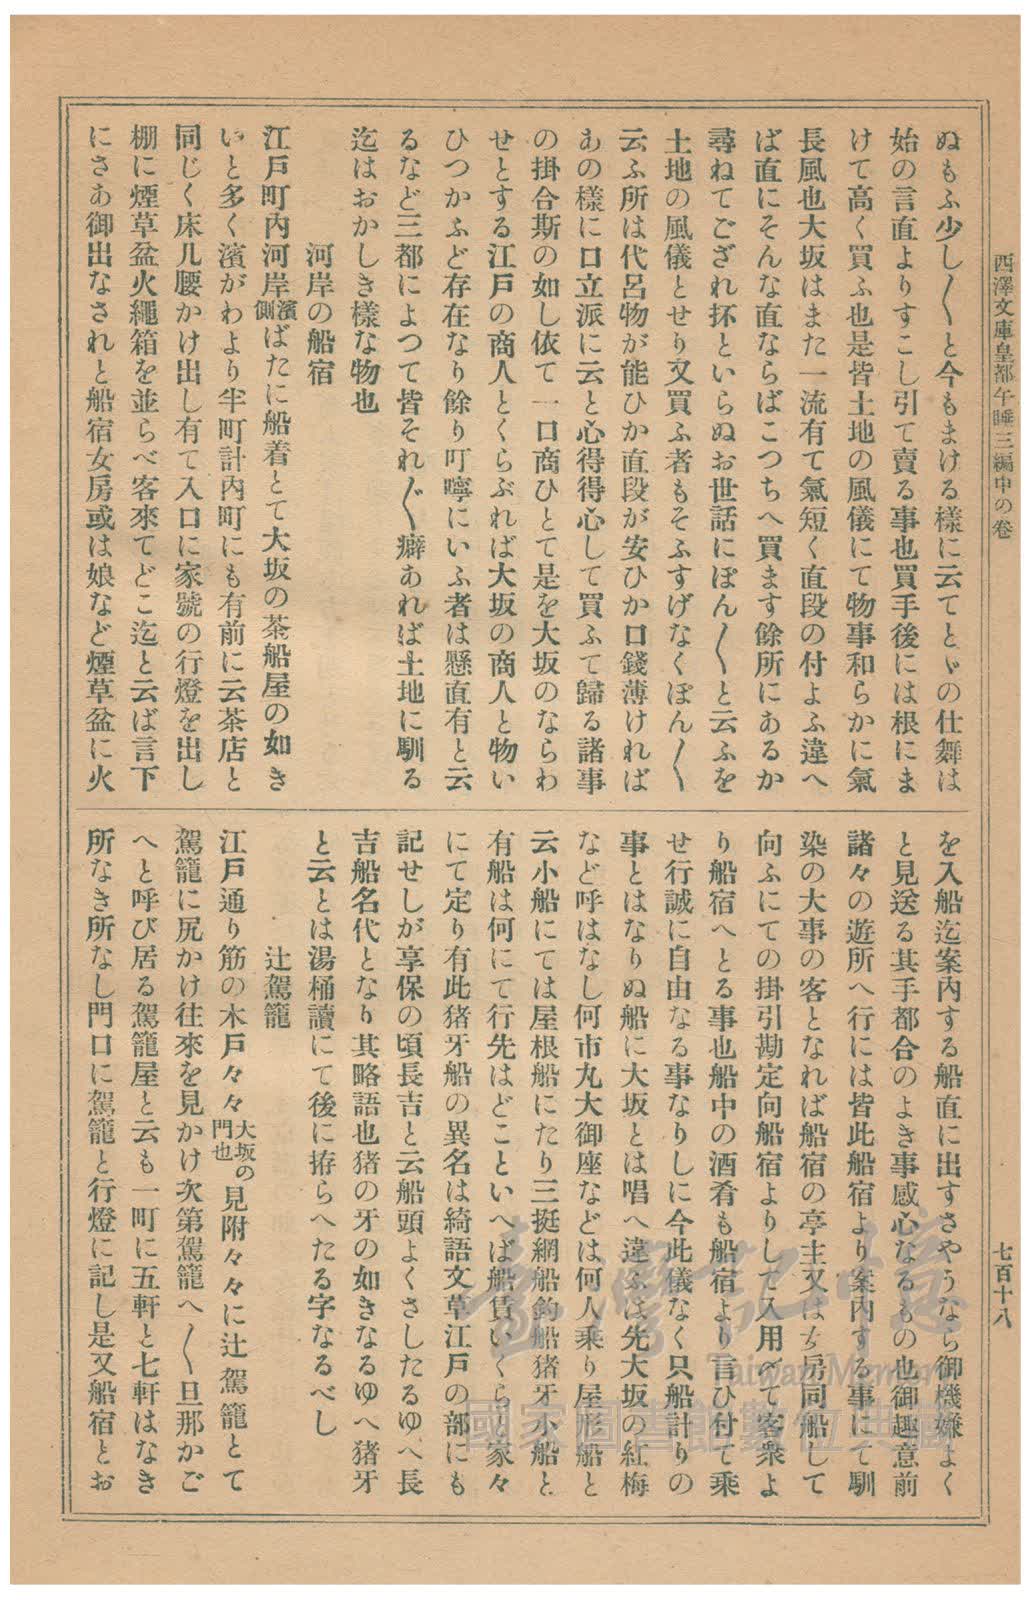 西澤文庫皇都午睡三編中の卷
七百十八
ぬもふ少し〳〵と今もまける樣に云てとゞの仕舞は
始の言直よりすこし引て賣る事也買手後には根にま
けて高く買ふ也是皆土地の風儀にて物事和らかに氣
長風也大坂はまた一流有て氣短く直段の付よふ違へ
ば直にそんな直ならばこつちへ買ます餘所にあるか
尋ねてござれ抔といらぬお世話にぽん〳〵と云ふを
土地の風儀とせり又買ふ者もそふすげなくぽん〳〵
云ふ所は代呂物が能ひか直段が安ひか口錢薄ければ
あの樣に口立派に云と心得得心して買ふて歸る諸事
の掛合斯の如し依て一口商ひとて是を大坂のならわ
せとする江戸の商人とくらぶれば大坂の商人と物い
ひつかふど存在なり餘り叮嚀にいふ者は懸直有と云
るなど三都によつて皆それ〴〵癖あれば土地に馴る
迄はおかしき樣な物也
河岸の船宿
江戸町內河岸濱側ばたに船着とて大坂の茶船屋の如き
いと多く濱がわより半町計內町にも有前に云茶店と
同じく床几腰かけ出し有て入口に家號の行燈を出し
棚に煙草盆火繩箱を並らべ客來てどこ迄と云ば言下
にさあ御出なされと船宿女房或は娘など煙草盆に火
を入船迄案內する船直に出すさやうなら御機嫌よく
と見送る其手都合のよき事感心なるもの也御趣意前
諸々の遊所へ行には皆此船宿より案內する事にて馴
染の大事の客となれば船宿の亭主又は女房同船して
向ふにての掛引勘定向船宿よりして入用〆て客衆よ
り船宿へとる事也船中の酒肴も船宿より言ひ付て乘
せ行誠に自由なる事なりしに今此儀なく只船計りの
事とはなりぬ船に大坂とは唱へ違ふは先大坂の紅梅
など呼はなし何市丸大御座などは何人乘り屋形船と
云小船にては屋根船にたり三挺網船釣船猪牙小船と
有船は何にて行先はどこといへば船賃いくらと家々
にて定り有此猪牙船の異名は綺語文草江戸の部にも
記せしが享保の頃長吉と云船頭よくさしたるゆへ長
吉船名代となり其略語也猪の牙の如きなるゆへ猪牙
と云とは湯桶讀にて後に拵らへたる字なるべし
辻駕籠
江戸通り筋の木戸々々大坂の門也見附々々に辻駕籠とて
駕籠に尻かけ往來を見かけ次第駕籠へ〳〵旦那かご
へと呼び居る駕籠屋と云も一町に五軒と七軒はなき
所なき所なし門口に駕籠と行燈に記し是又船宿とお
臺灣記憶
Taiwan Memory
國家圖書館數位典藏